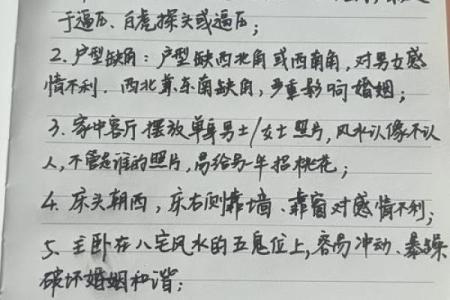 于逼压、白虎探头或逼压;
2.户型缺角:户型缺西北角或西南角,对男女感
情不利.西北兼东南缺角,严重影响婚姻;
3.家中客厅摆放单身男士/女士照片,风水认像不认
人,不管是谁的照片,易给另一年招桃花;
4.床头朝西,床右侧靠墙、靠窗对感情不利;
5.主卧在八宅风水的五鬼位上,容易冲动、暴躁
破坏婚姻和谐;